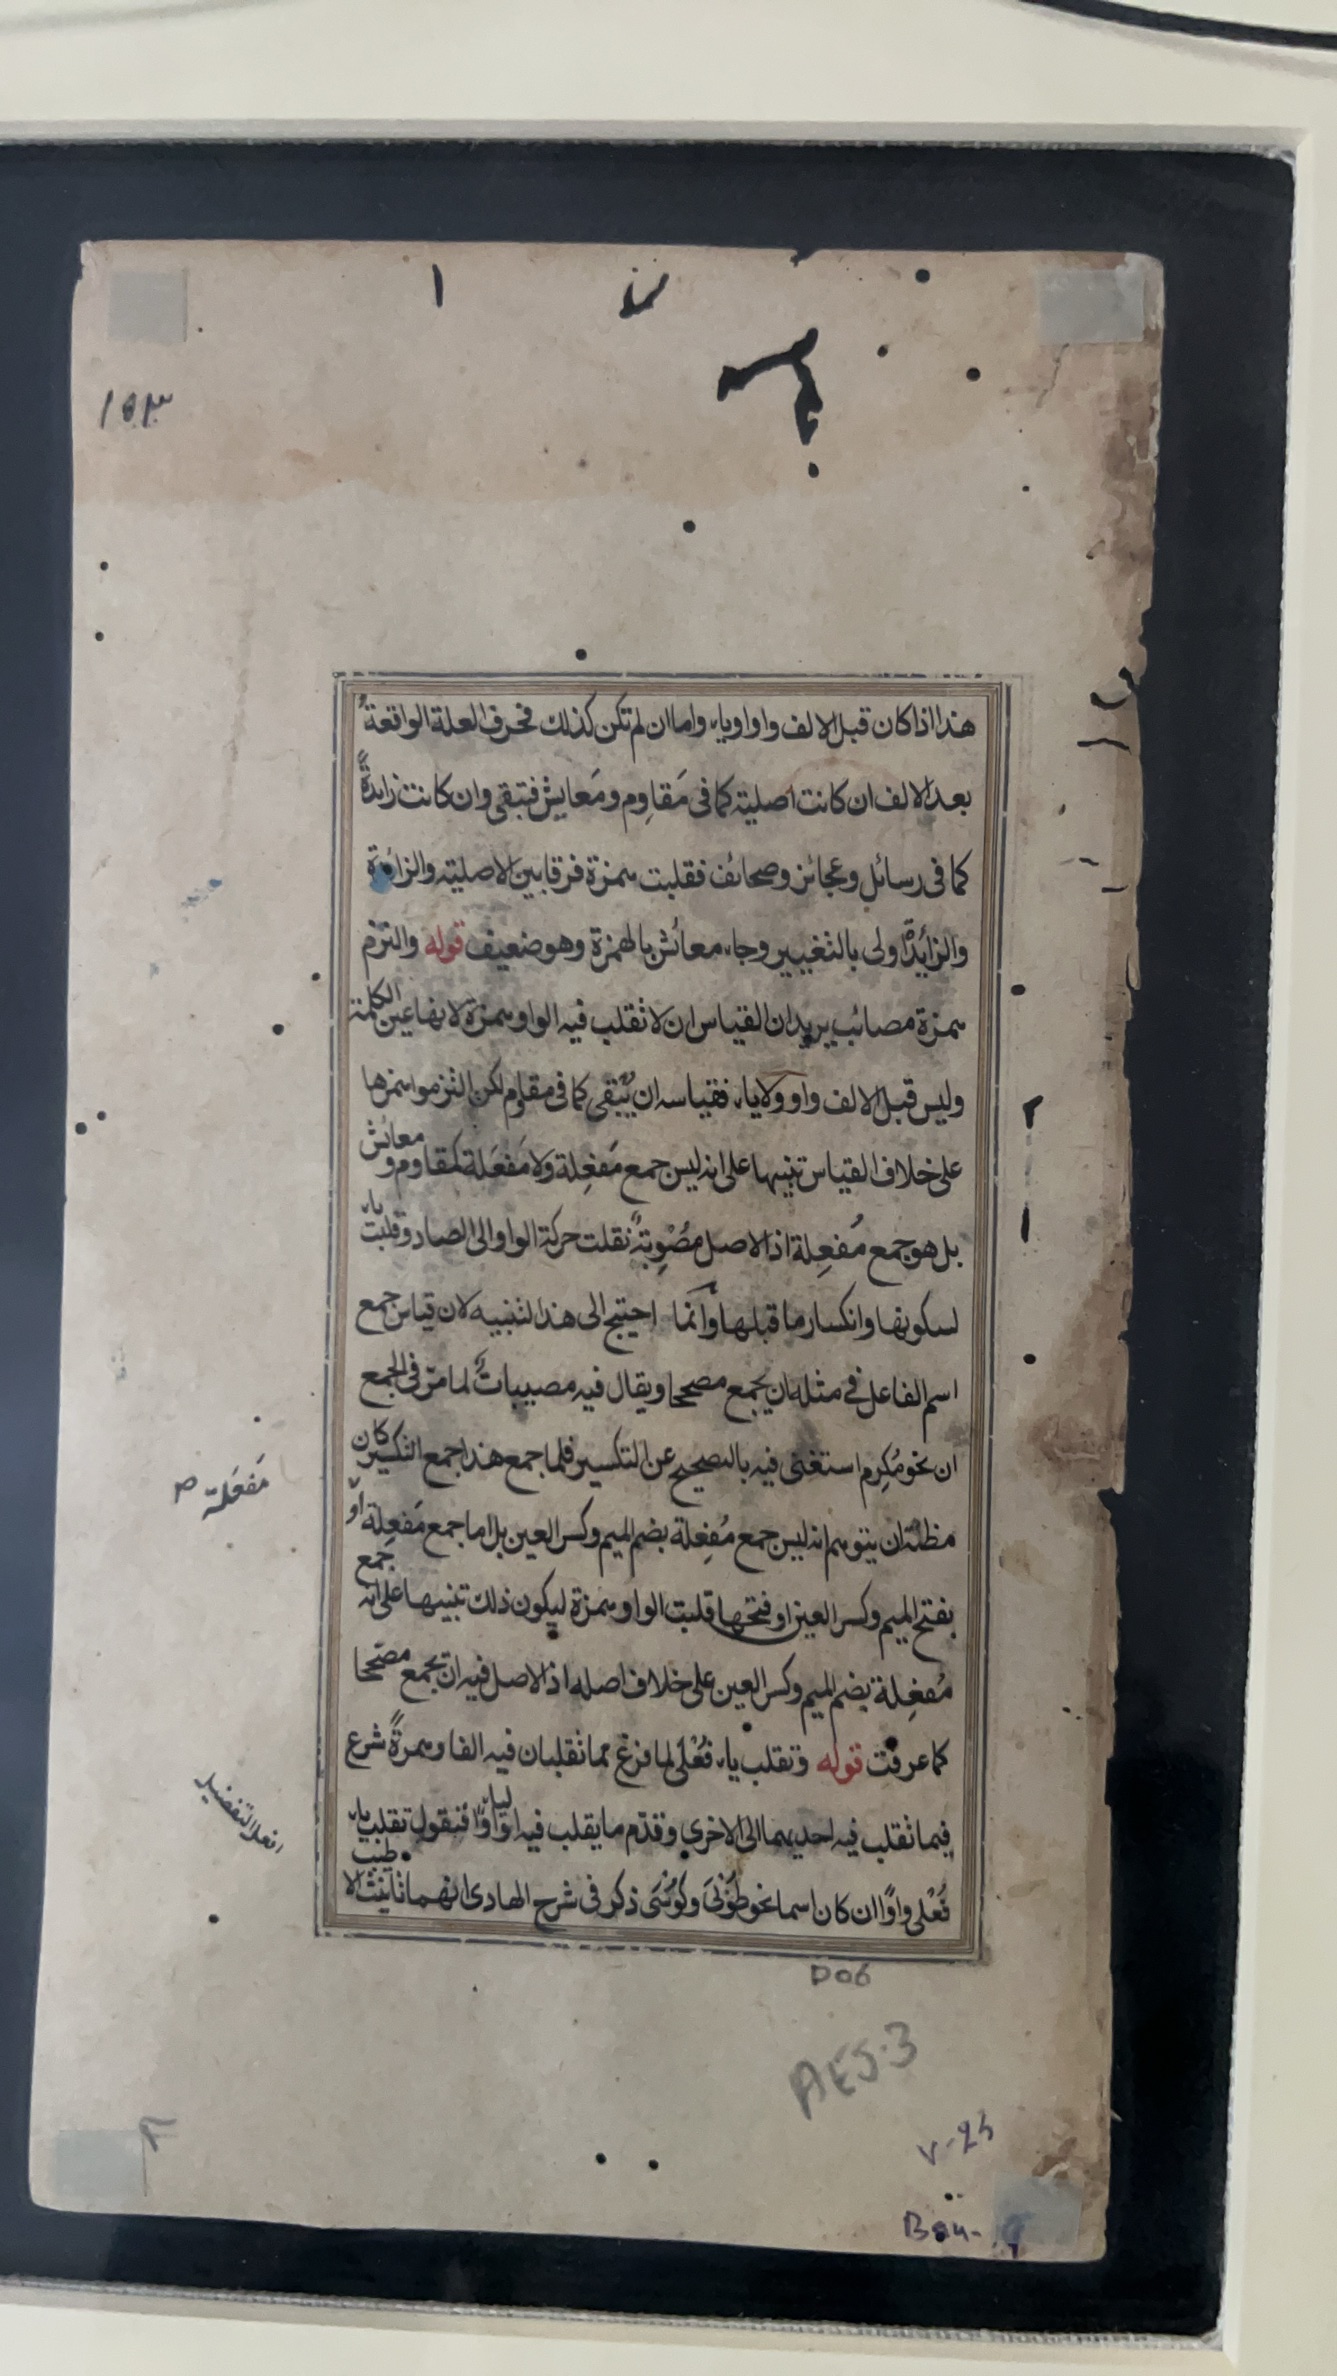 ١٥٣
هذا اذا كان قبل الالف واو او ياء واما ان لم تكن كذلك فحرف العلة الواقعة
بعد الالف ان كانت اصلية كما في مَقاوِم ومَعايش فتبقى وان كانت زايدةً
كما في رسائل وعجائز وصحائف فقلبت همزة فرقا بين الاصلية والزائدة
والزائدة اولى بالتغيير وجاء معائش بالهمزة وهو ضعيف قوله والتزم
همزة مصائب يريد ان القياس ان لا تقلب فيه الواو همزة لانها عين الكلمة
وليس قبل الالف واو ولا ياء فقياسه ان يُبْقى كما في مقاوم لكن التزموا همزها
على خلاف القياس تنبيها على انه ليس جمع مَفعِلة ولا مَفعَلة كمقاوم ومعائش
بل هو جمع مُفعِلة اذ الاصل مُصْوِبةٌ نقلت حركة الواو الى الصاد وقلبت ياء
لسكونها وانكسار ما قبلها وانما احتيج الى هذا التنبيه لان قياس جمع
اسم الفاعل في مثله ان يجمع مصححا ويقال فيه مصيبات لما مرّ في الجمع
ان نحو مُكرِم استغنى فيه بالتصحيح عن التكسير فلما جمع هذا جمع التكسير كان
مظنة ان يتوهم انه ليس جمع مُفعِلة بضم الميم وكسر العين بل اما جمع مَفعِلة او
مَفعَلة صح
بفتح الميم وكسر العين او فتحها قلبت الواو همزة ليكون ذلك تنبيها على انه جمع
مُفعِلة بضم الميم وكسر العين على خلاف اصله اذ الاصل فيه ان يجمع مصحّحا
كما عرفت قوله وتقلب ياء فُعْلى لما فرغ مما تقلبان فيه الفا وهمزةً شرع
فيما تقلب فيه احديهما الى الاخرى وقدّم ما يقلب فيه الياء واوًا فنقول تقلب ياء
فُعْلى واوًا ان كان اسما نحو طُوْبىَ وكُوْسَى ذكر في شرح الهادى انهما تانيث الا
طيب
افعل التفضيل
D06
AES.3
V-23